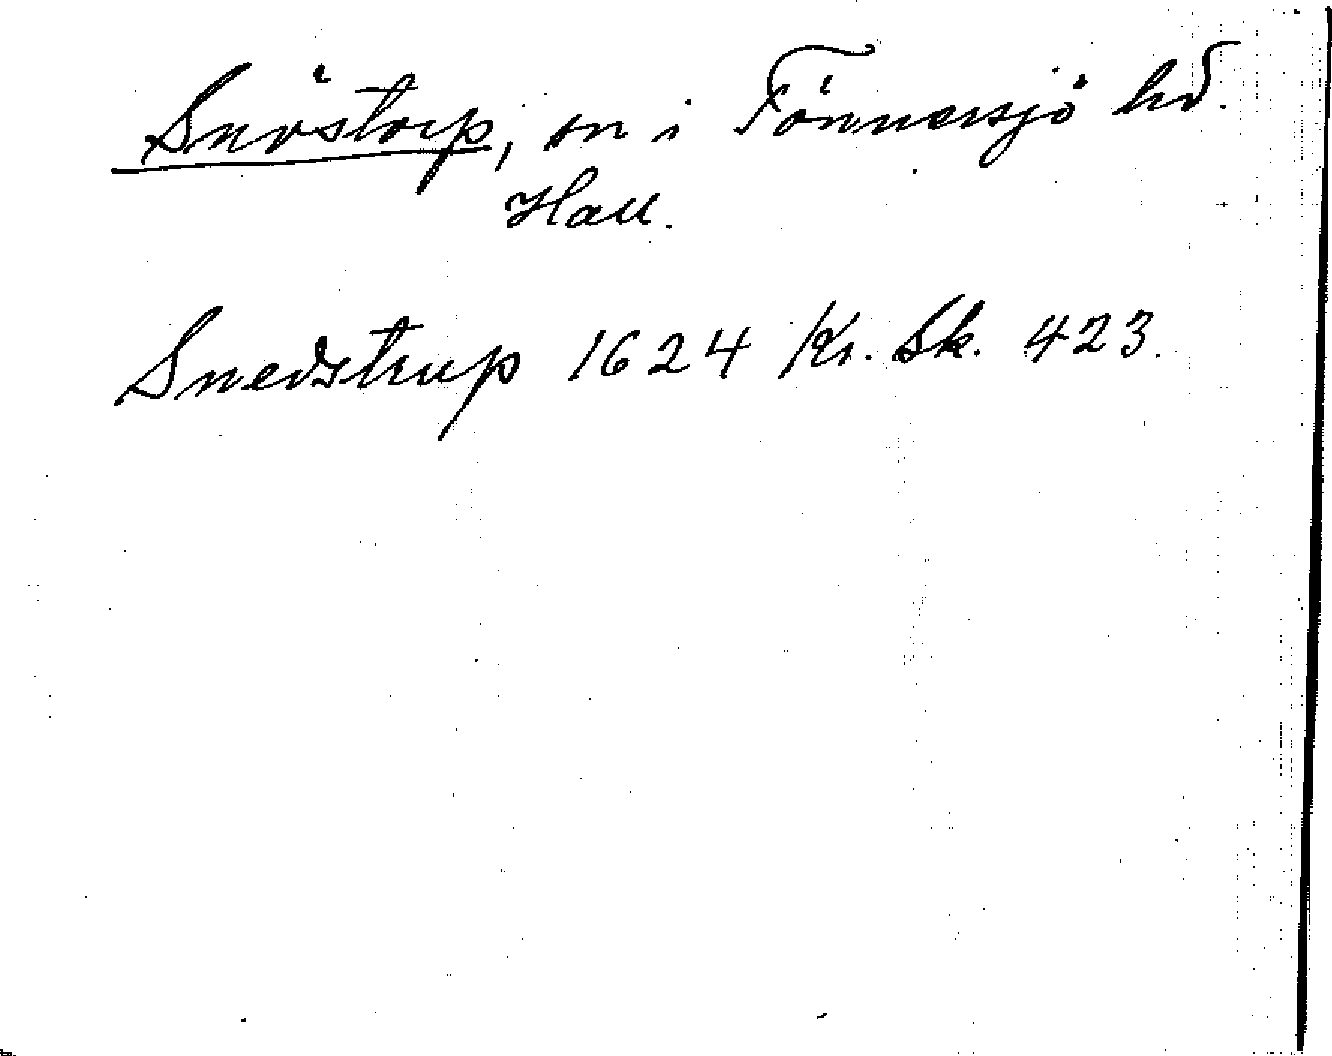 Snöstorp, sn i Tönnersjö hd.
Hall.
Snedstrup 1624 Kr. Sk. 423.